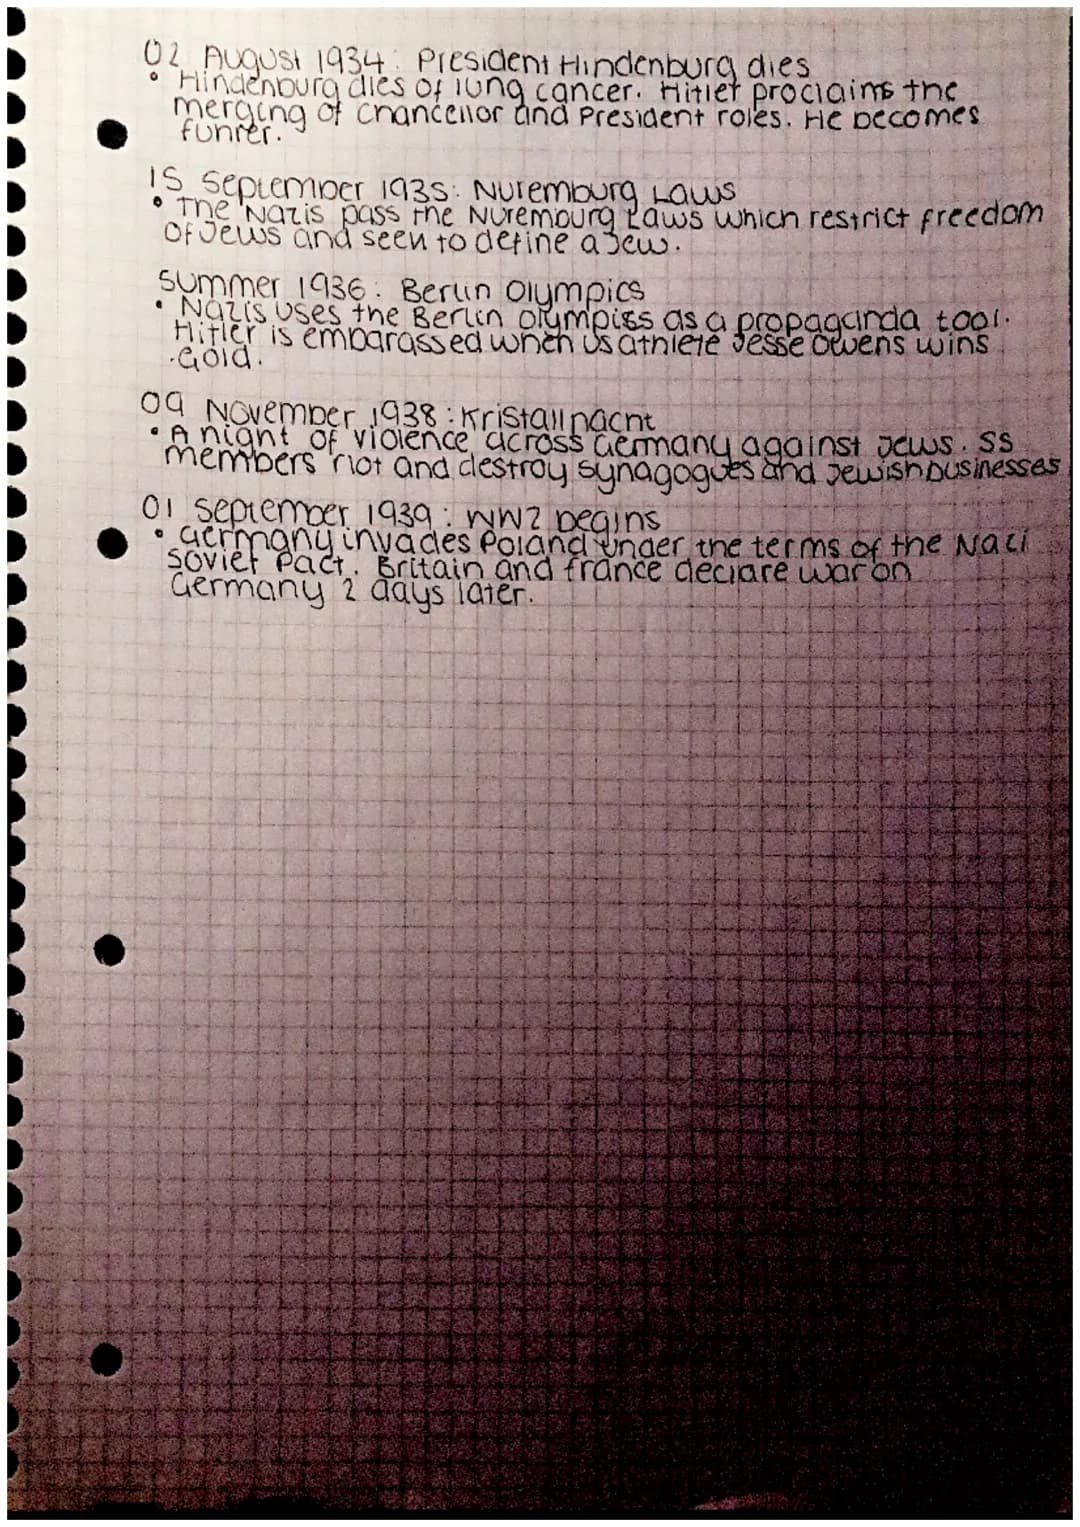 02 August 1934: President Hindenburg dies
• Hindenburg dies of lung cancer. Hitler proclaims the
merging of Chancellor and President roles. He becomes
funrer.
15 September 1935: Nuremburg Laws
• The Nazis pass the Nuremburg Laws which restrict freedom
of Jews and seen to define a Jew.
Summer 1936: Berlin Olympics
• Nazis uses the Berlin Olympiss as a propaganda tool.
Hitler is embarassed when US athlete Jesse Owens wins
Gold.
09 November 1938: Kristallnacht
• A night of violence across Germany against Jews. SS
members riot and destroy synagogues and Jewish businesses
01 September 1939: WW2 begins
• Germany invades Poland under the terms of the Nazi
Soviet Pact. Britain and France declare war on
Germany 2 days later.